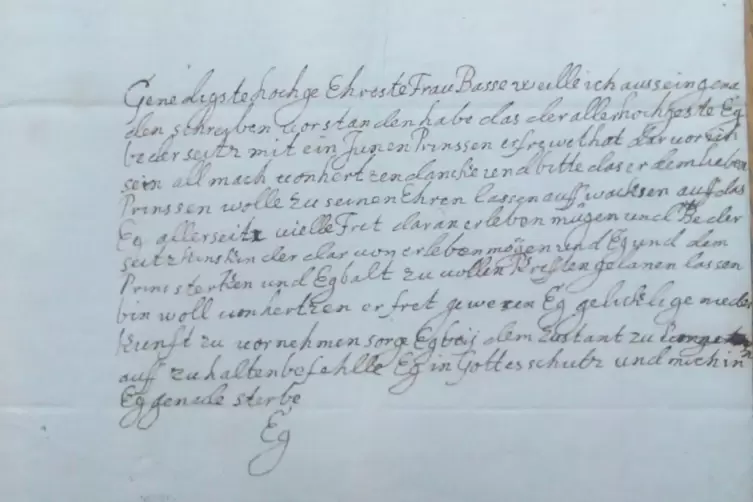 Genedigste hochge Ehreste Frau Basse weille ich aus sein gena
den schreiben vorstanden habe das der allerhochgeste Eg
beder seitz mit ein Junen Prinssen erfrewet hat dar vor ich
sein all mach von hertzen dancke und bitte das er dem lieben
Prinssen wolle zu seinen Ehren lassen auff wachsen auff das
Eg allerseitz vielle Fret daran erleben mügen und Beder
seitz kinskinder dar von erleben mögen und Eg und dem
Prins sterken und Eg balt zu vollen Kreften gelanen lassen
bin woll von hertzen er fret gewesen Eg gelicklige nieder
Kunft zu vornehmen sorge Eg beij dem Zustant zu
auff zu halten befehlle Eg in Gottes schutz und mich in
Eg genade sterbe
Eg